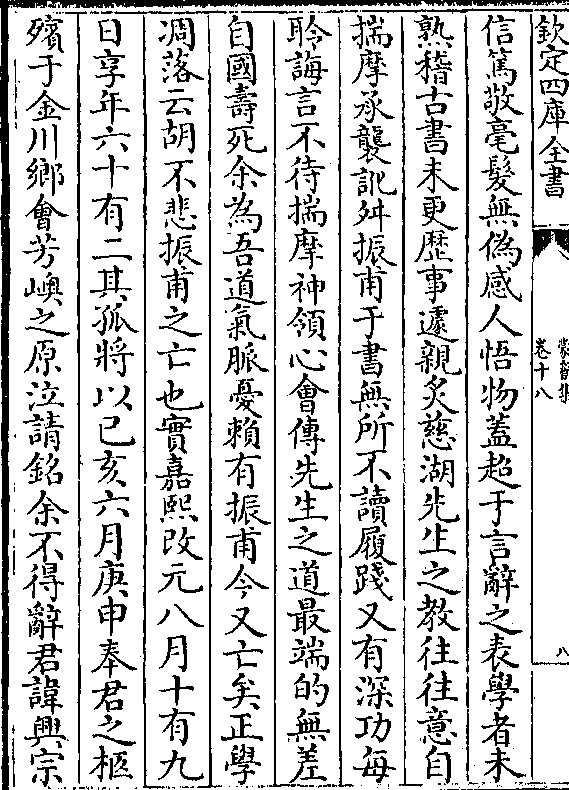 欽定四庫全書
蒙齋集
卷十八
八
信篤敬毫髮無偽感人悟物蓋超于言辭之表學者未
熟稽古書未更歴事遽親炙慈湖先生之教往往意自
揣摩承襲訛舛振甫于書無所不讀履踐又有深功每
聆誨言不待揣摩神領心會傳先生之道最端的無差
自國壽死余為吾道氣脈憂賴有振甫今又亡矣正學
凋落云胡不悲振甫之亡也實嘉熙改元八月十有九
日享年六十有二其孤將以己亥六月庚申奉君之柩
殯于金川鄉會芳嶼之原泣請銘余不得辭君諱興宗